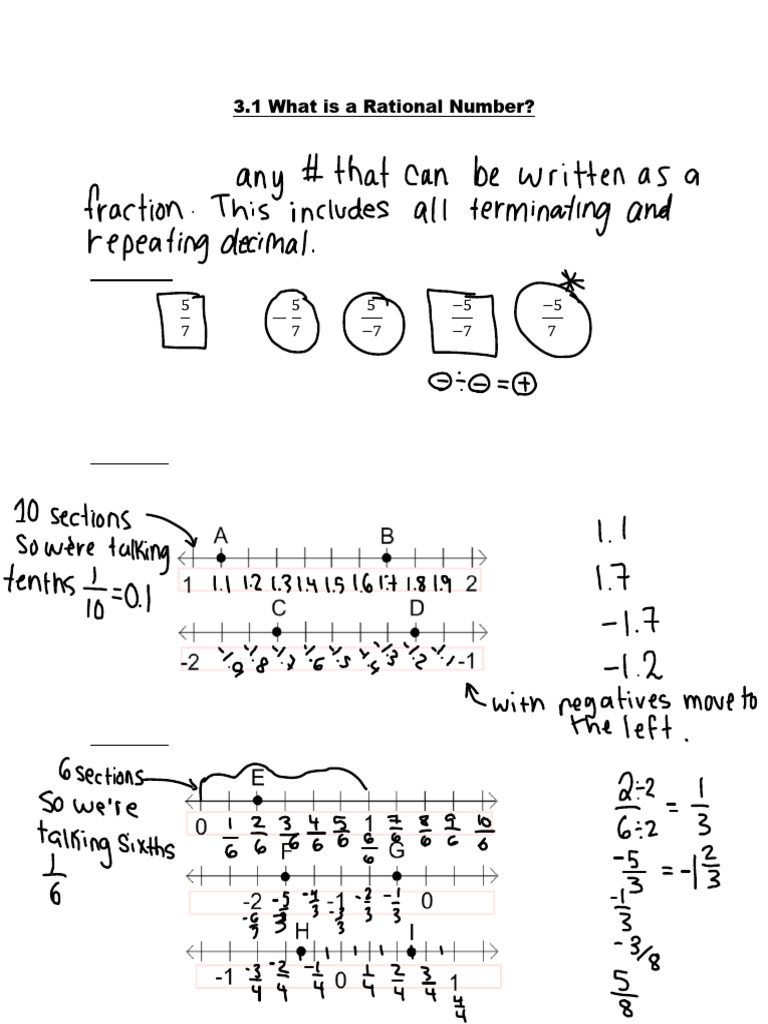 3.1 What is a Rational Number?
any # that can be written as a
fraction. This includes all terminating and
repeating decimal.
5/7 -5/7 5/-7 -5/-7 -5/7 *
⊖÷⊖=⊕
10 sections
So we're talking
tenths 1/10 = 0.1
A B
1 1.1 1.2 1.3 1.4 1.5 1.6 1.7 1.8 1.9 2
C D
-2 -1
1.1
1.7
-1.7
-1.2
with negatives move to
the left.
6 sections
So we're
talking Sixths
1/6
E
0 1/6 2/6 3/6 4/6 5/6 1 6/6 7/6 8/6 9/6 10/6
F G
-2 -6/3 -5/3 -4/3 -1 -3/3 -2/3 -1/3 0
H I
-1 -3/4 -2/4 -1/4 0 1/4 2/4 3/4 1 4/4
2÷2/6÷2 = 1/3
-5/3 = -1 2/3
-1/3
-3/8
5/8